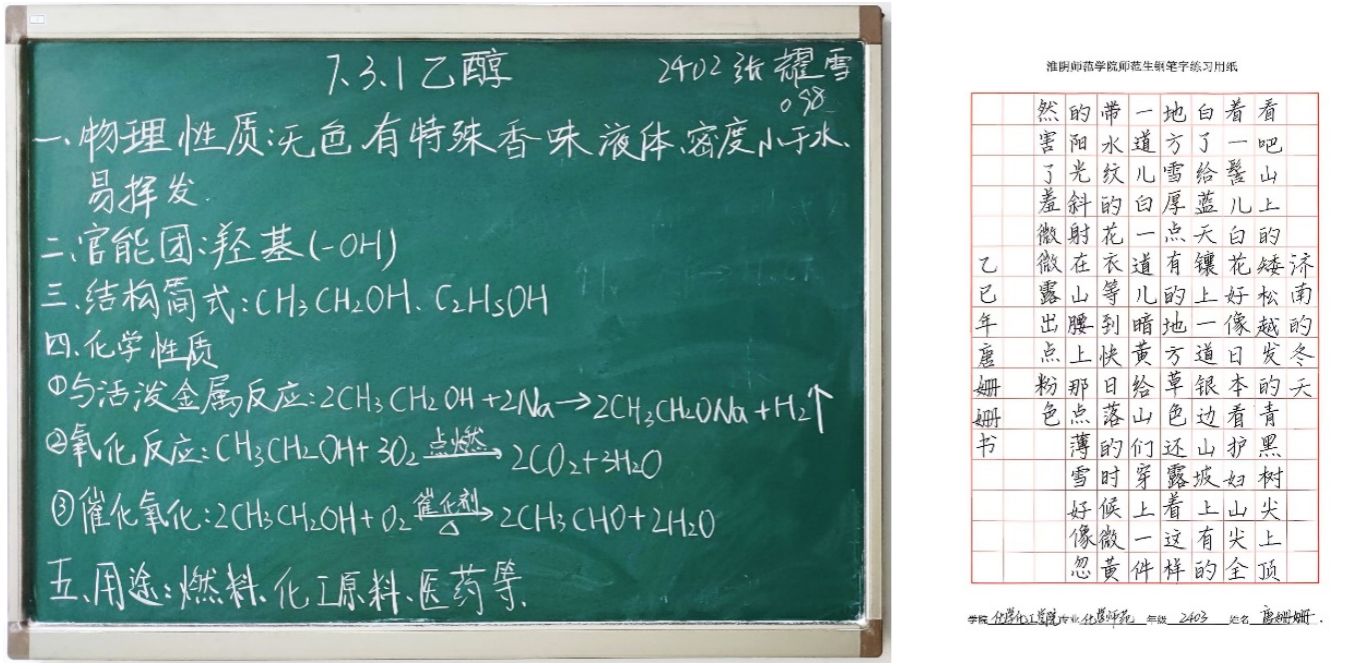 7.3.1乙醇
2402 张耀雪
098
一、物理性质:无色有特殊香味液体、密度小于水、
易挥发.
二、官能团:羟基(-OH)
三、结构简式:CH₃CH₂OH、C₂H₅OH
四、化学性质
①与活泼金属反应:2CH₃CH₂OH+2Na→2CH₃CH₂ONa+H₂↑
②氧化反应:CH₃CH₂OH+3O₂ 点燃→ 2CO₂+3H₂O
③催化氧化:2CH₃CH₂OH+O₂ 催化剂→△ 2CH₃CHO+2H₂O
五、用途:燃料、化工原料、医药等.
淮阴师范学院师范生钢笔字练习用纸
济南的冬天
看吧山上的矮松越发的青黑树尖上顶
着一髻儿白花好像日本看护妇山尖全
白了给蓝天镶上一道银边山坡上有的
地方雪厚点有的地方草色还露着这样
一道儿白一道儿暗黄给山们穿上一件
带水纹的花衣等到快日落的时候微黄
的阳光斜射在山腰上那点薄雪好像忽
然害了羞微微露出点粉色
乙巳年唐姗姗书
学院 化学化工学院 专业 化学师范 年级 2403 姓名 唐姗姗.